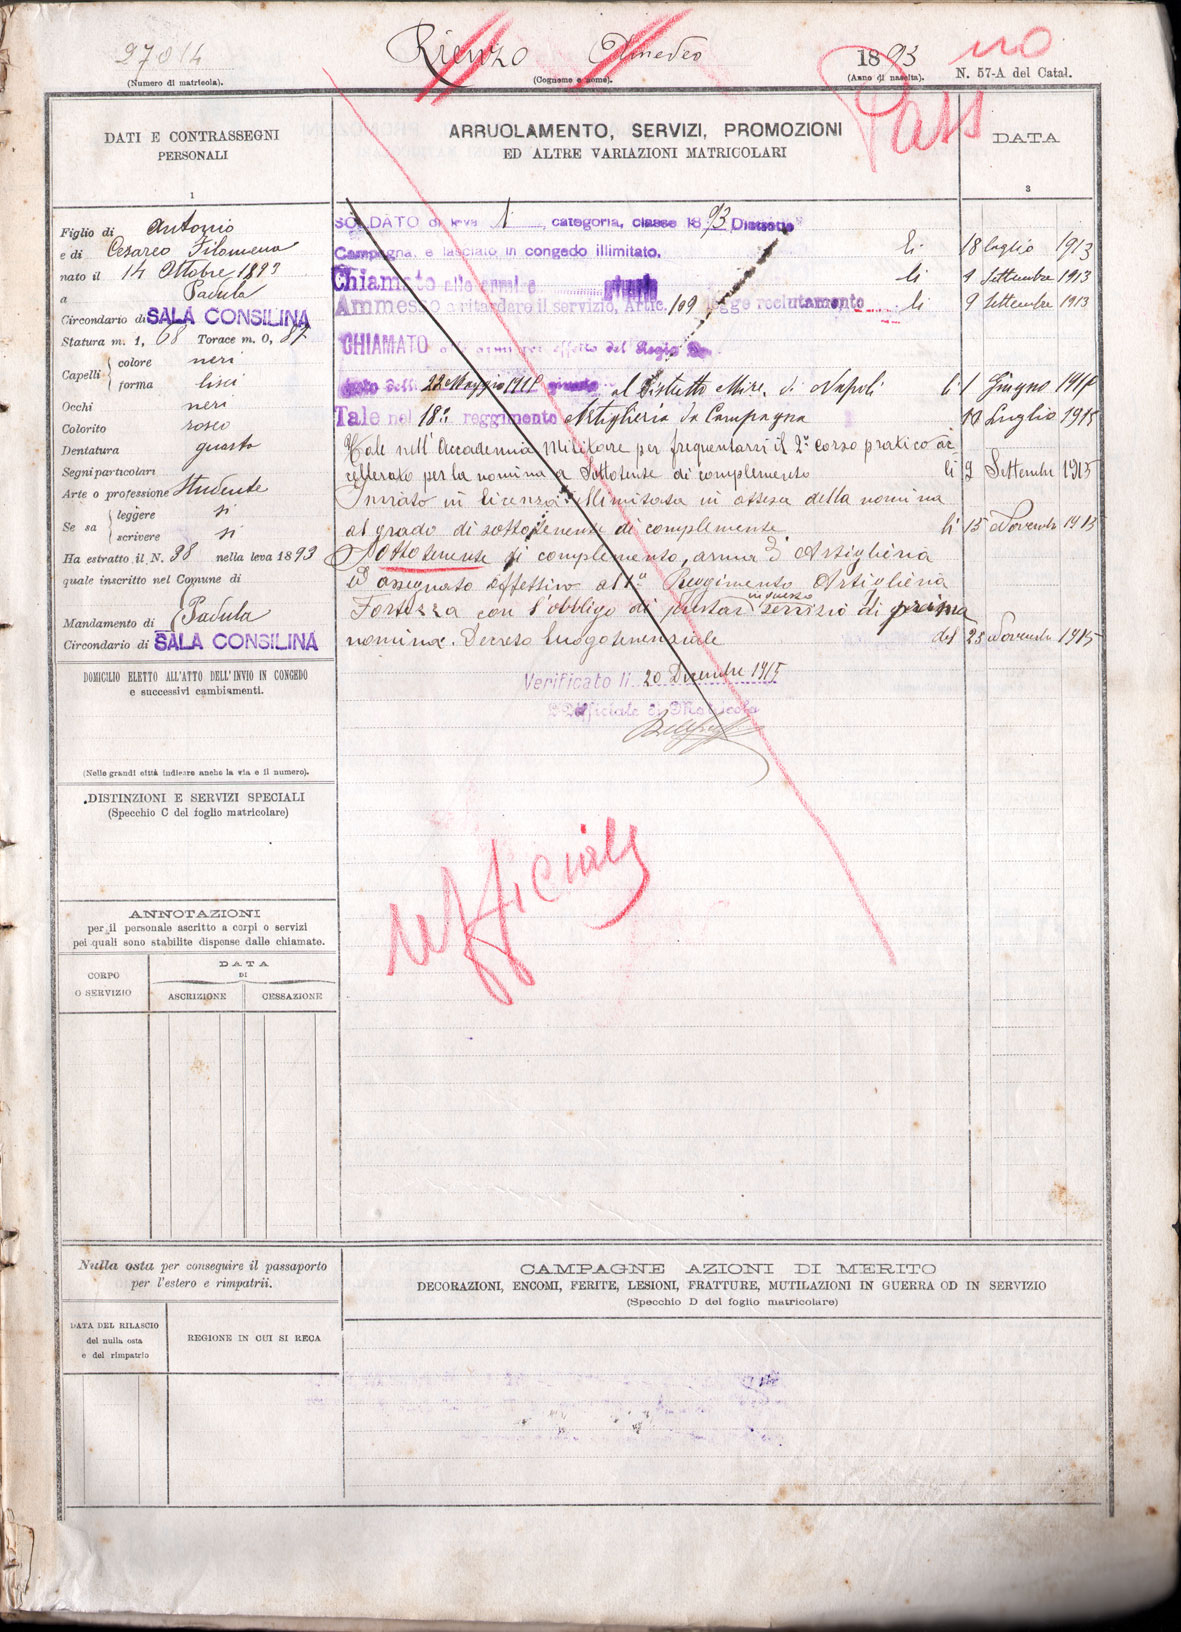 27014
Rienzo Amedeo 1893
(Numero di matricola). (Cognome e nome). (Anno di nascita). N. 57-A del Catal.
no
Pass
DATI E CONTRASSEGNI
PERSONALI
1
ARRUOLAMENTO, SERVIZI, PROMOZIONI
ED ALTRE VARIAZIONI MATRICOLARI
DATA
3
Figlio di Antonio
e di Cesareo Filomena
nato il 14 Ottobre 1893
a Padula
Circondario di SALA CONSILINA
Statura m. 1, 68 Torace m. 0, 87
Capelli colore neri
forma lisci
Occhi neri
Colorito roseo
Dentatura guasta
Segni particolari
Arte o professione Studente
Se sa leggere si
scrivere si
Ha estratto il N. 38 nella leva 1893
quale inscritto nel Comune di
Padula
Mandamento di
Circondario di SALA CONSILINA
DOMICILIO ELETTO ALL'ATTO DELL'INVIO IN CONGEDO
e successivi cambiamenti.
(Nelle grandi città indicare anche la via e il numero).
DISTINZIONI E SERVIZI SPECIALI
(Specchio C del foglio matricolare)
ANNOTAZIONI
per il personale ascritto a corpi o servizi
pei quali sono stabilite dispense dalle chiamate.
CORPO
O SERVIZIO
DATA
DI
ASCRIZIONE CESSAZIONE
SOLDATO di leva 1 categoria, classe 1893 Distretto
Campagna, e lasciato in congedo illimitato. li 18 luglio 1913
Chiamato alle armi e li 1 Settembre 1913
Ammesso a ritardare il servizio, Artic. 109 legge reclutamento li 9 Settembre 1913
CHIAMATO alle armi per effetto del Regio De-
22 Maggio al Distretto Milre. di Napoli li 1 Giugno
Tale nel 18º reggimento Artiglieria da Campagna Luglio 1915
Tale nell'Accademia Militare per frequentarvi il 2º corso pratico ac-
cellerato per la nomina a Sottotente di complemento li 2 Settembre 1915
Inviato in licenza illimitata in attesa della nomina
al grado di sottotenente di complemento li 15 Novembre 1915
Sottotenente di complemento, arma d'Artiglieria
Ed assegnato effettivo al Reggimento Artiglieria
Fortezza con l'obbligo di prestar servizio di prima
nomina. Decreto luogotenenziale del 23 Novembre 1915
Verificato li 20 Dicembre 1915
L'Ufficiale di Matricola
ufficiale
Nulla osta per conseguire il passaporto
per l'estero e rimpatrii.
DATA DEL RILASCIO
del nulla osta
e del rimpatrio
REGIONE IN CUI SI RECA
CAMPAGNE AZIONI DI MERITO
DECORAZIONI, ENCOMI, FERITE, LESIONI, FRATTURE, MUTILAZIONI IN GUERRA OD IN SERVIZIO
(Specchio D del foglio matricolare)